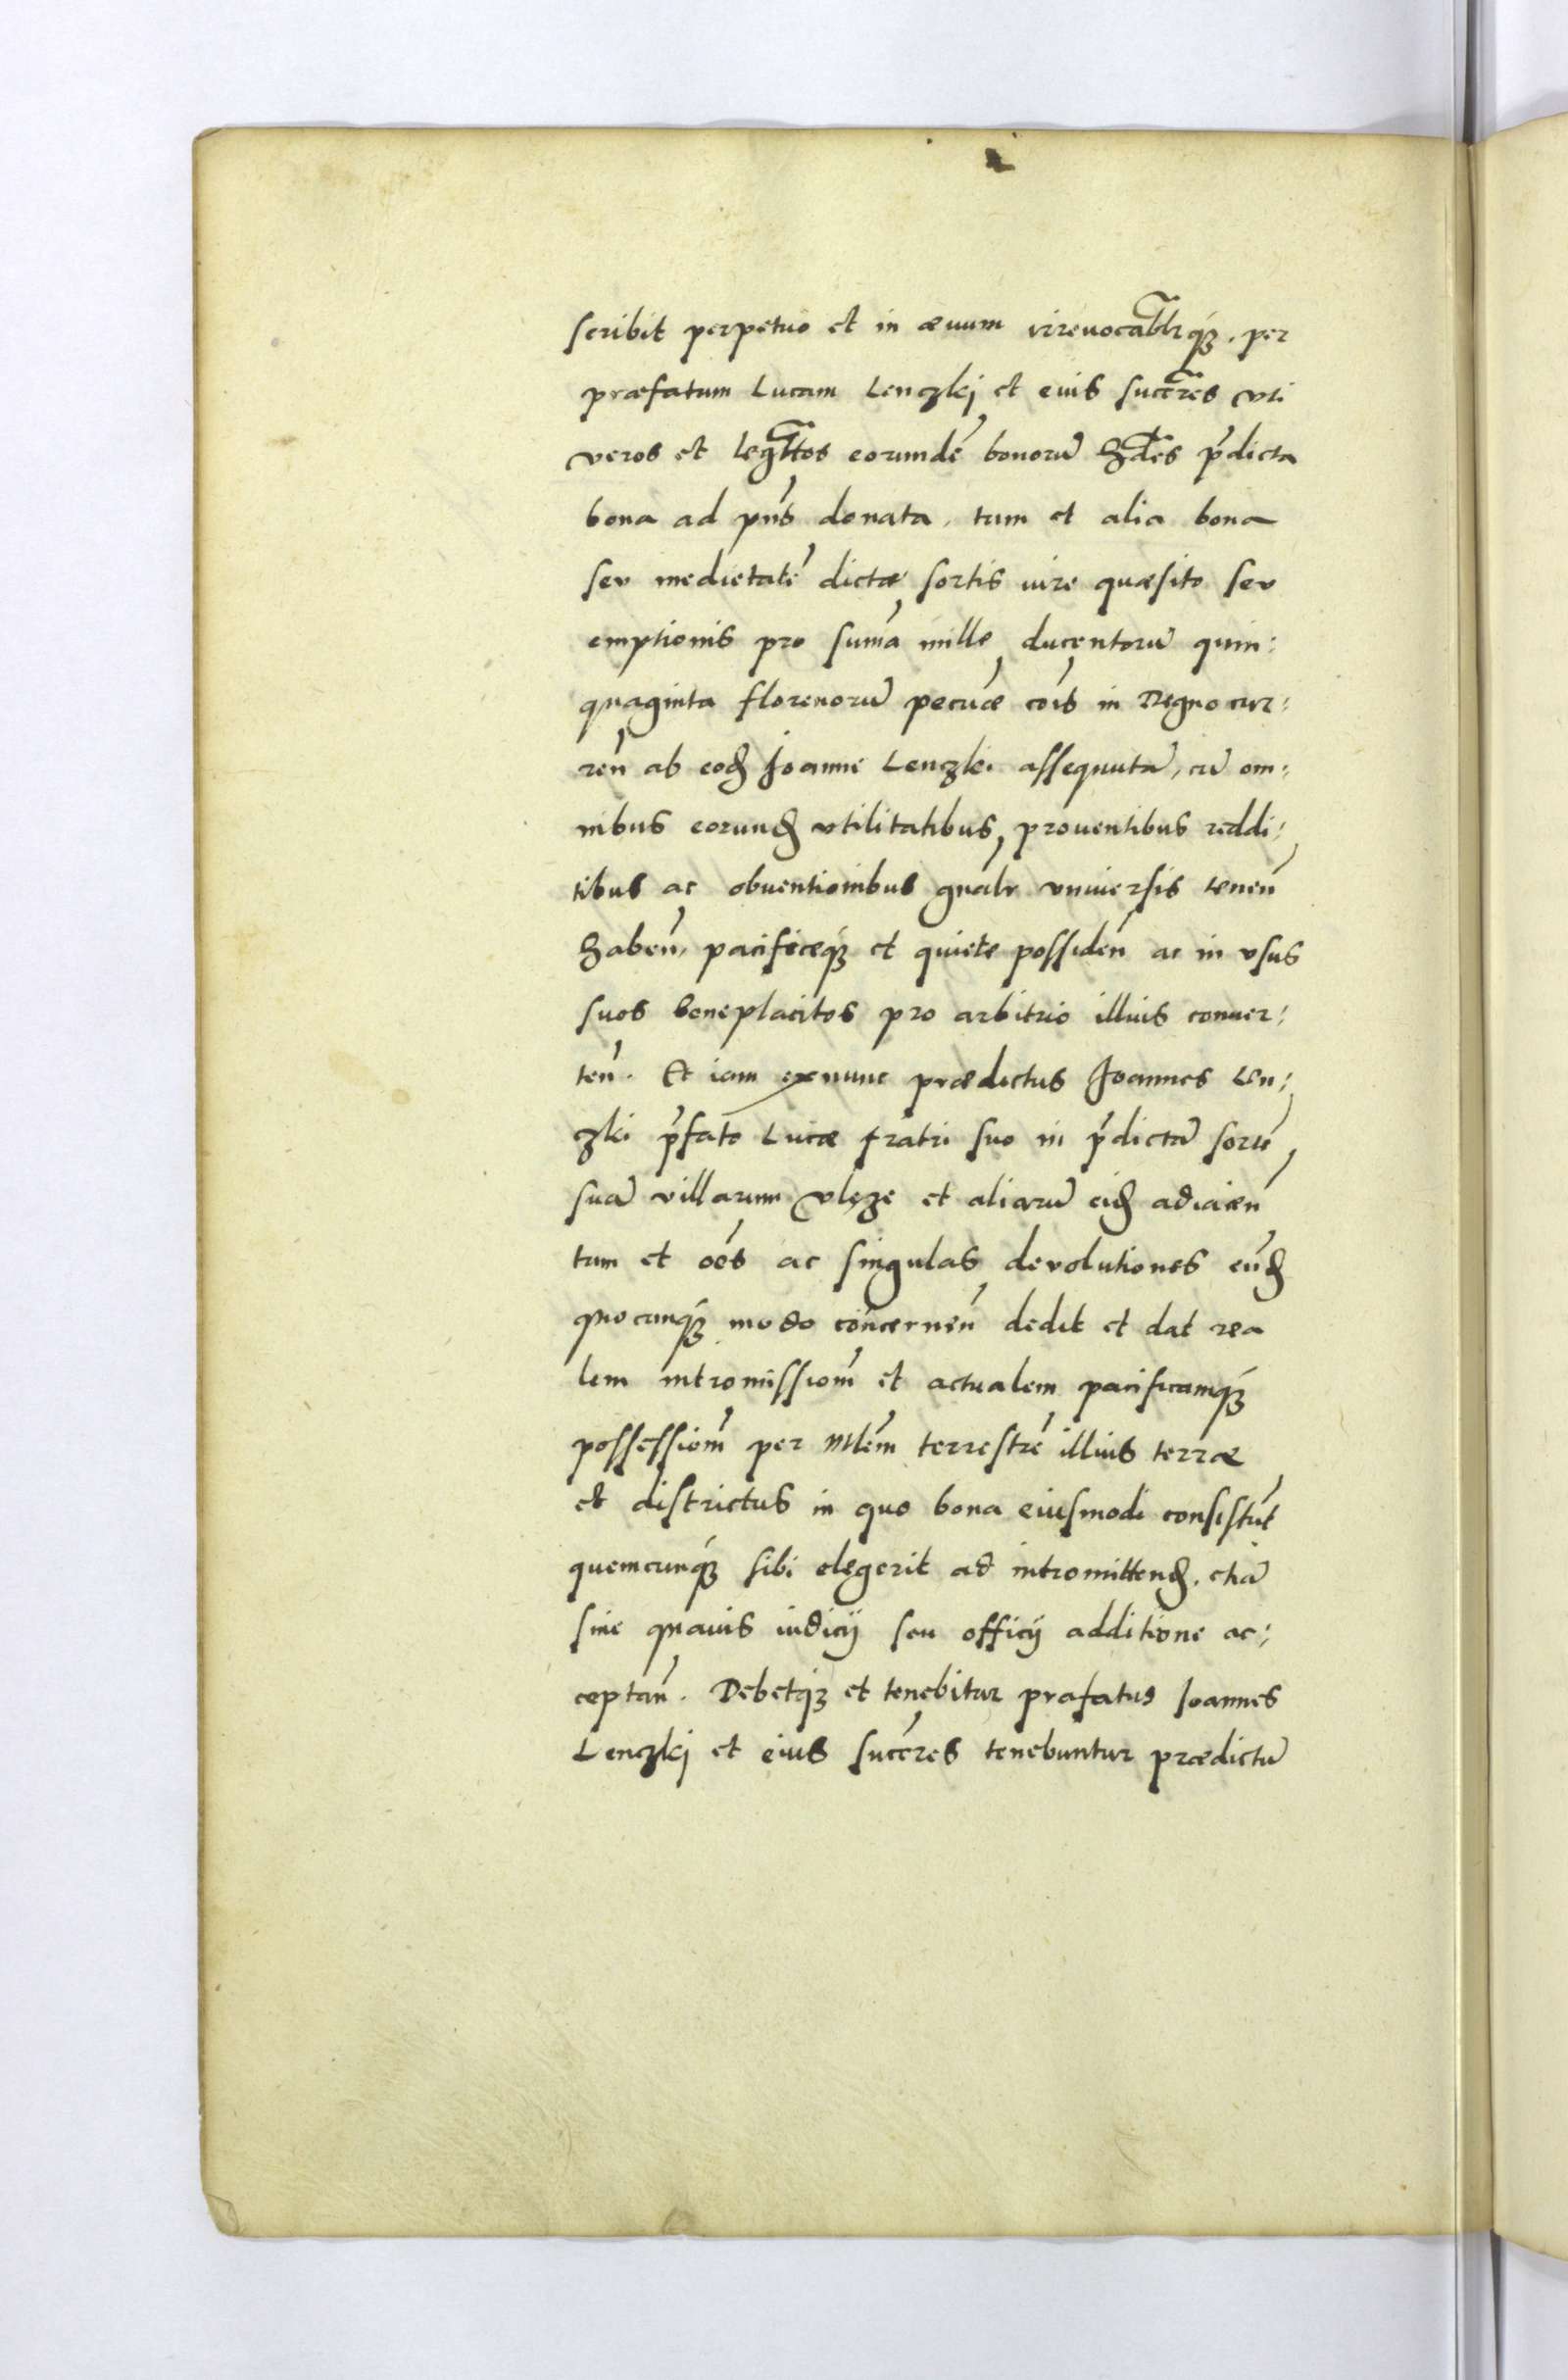 scribit perpetuo et in æuum irreuocabłrq̃ꝫ. per
præfatum Lucam Lenczkj et eius succ̃res vti
veros et leg̃ttos eorundẽ bonorũ hd̃es p̃dicta
bona ad pñs donata, tum et alia bona
seu medietatẽ dictæ sortis iure quæsito seu
emptionis pro sum̃a mille ducentorũ quin:
quaginta florenorũ pecuñæ cõis in Regno cur:
reñ ab eoꝺ Joanne Lenczki assequutã, cũ om:
nibus eorunꝺ vtilitatibus, prouentibus reddi:
tibus ac obuentionibus gñalr vniuersis teneñ
habeñ, pacificeq̃ꝫ et quiete possideñ ac in vsus
suos beneplacitos pro arbitrio illius conuer:
teñ. Et iam exnunc prædictus Joannes Len:
czki p̃fato Lucæ fratri suo in p̃dictã sortẽ
suã villarum Vlęze et aliarũ eiꝺ adiaceñ
tum et oẽs ac singulas devolutiones eũꝺ
quocunq̃ꝫ modo concerneñ dedit et dat rea
lem intromissiom̃ et actualem pacificamq̃ꝫ
possessiom̃ per Mlẽm terrestrẽ illius terræ
et districtus in quo bona eiusmodi consistũt
quemcunq̃ꝫ sibi elegerit ad intromittenꝺ. etiã
sine quauis iudicij seu officij additione ac:
ceptañ. Debetq̃ꝫ et tenebitur præfatus Joannes
Lenczkj et eius succ̃res tenebuntur prædictũ